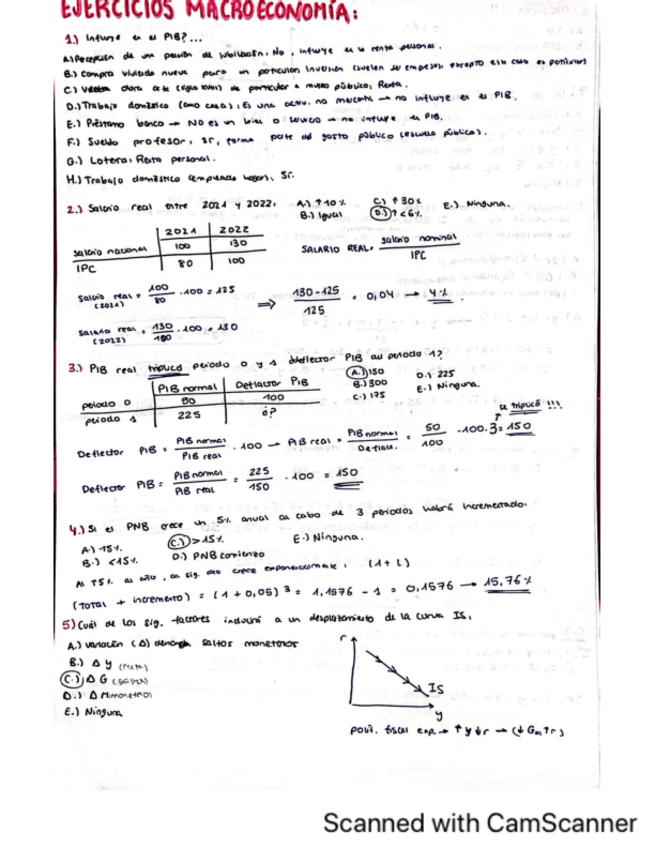 EJERCICIOS MACROECONOMÍA:
1.) Influye en el PIB?...
A) Percepción de una pensión de jubilación, No, influye en la renta personal.
B.) Compra vivienda nueva para un particular, Inversión (suelen ser empresas, excepto este caso es particular)
C.) Venta obra arte (siglo XVIII) de particular a museo público, Renta.
D.) Trabajo doméstico (amo casa), Es una activ. no mercantil → no influye en el PIB.
E.) Préstamo banco → NO es un bien o servicio → no influye en PIB.
F.) Sueldo profesor, sí, forma parte del gasto público (escuela pública).
G.) Lotería, Renta personal.
H.) Trabajo doméstico (empleada hogar), Sí.
2.) Salario real entre 2021 y 2022.
A.) ↑10%
C.) ↑30%
E.) Ninguna.
B.) Igual
D.) ↑<6%
2021 2022
salario nacional 100 130
IPC 80 100
SALARIO REAL = salario nominal / IPC
Salario real (2021) = 100/80 · 100 = 125
⇒ 130-125 / 125 = 0,04 → 4%
Salario real (2022) = 130/100 · 100 = 130
3.) PIB real triplica periodo 0 y 1 deflector PIB al periodo 1?
A.) 150
D.) 225
B.) 300
E.) Ninguna.
C.) 175
PIB normal Deflactor PIB
periodo 0 50 100
periodo 1 225 ¿?
se triplicó !!!
Deflector PIB = PIB normal / PIB real · 100 → PIB real = PIB normal / Deflac. = 50/100 · 100 · 3 = 150
Deflector PIB = PIB normal / PIB real = 225/150 · 100 = 150
4.) Si el PNB crece un 5% anual al cabo de 3 periodos habrá incrementado.
A.) 15%.
C.) >15%
E.) Ninguna.
B.) <15%.
D.) PNB comienzo
Al ↑5% al año, en sig. año crece exponencialmente, (1 + i)
(total + incremento) = (1 + 0,05)³ = 1,1576 - 1 = 0,1576 → 15,76%
5) Cuál de los sig. factores inducirá a un desplazamiento de la curva IS,
A.) variación (Δ) saldos monetarios
B.) Δ Y (renta)
C.) Δ G
D.) Δ M
E.) Ninguna
r
IS
y
polít. fiscal exp. → ↑y↓r →
Scanned with CamScanner